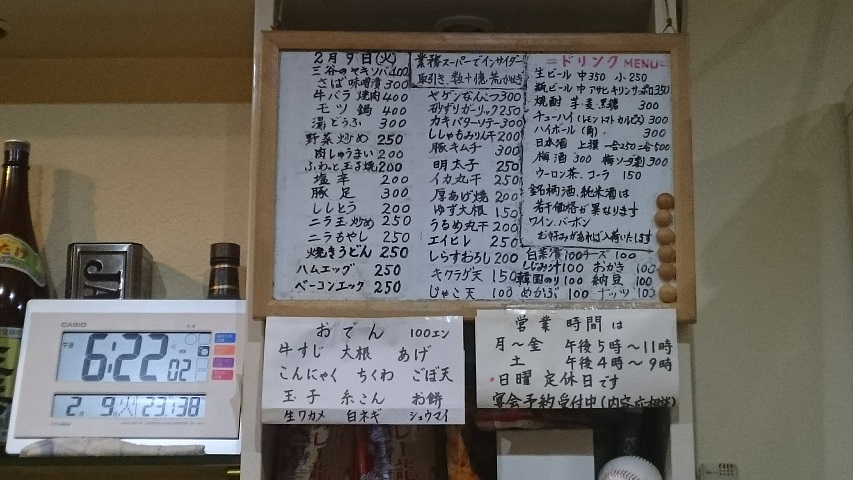 2月9日(火)
三谷のヤキソバ400
さば味噌漬300
牛バラ焼肉400
モツ鍋400
湯どうふ300
野菜炒め250
肉しゅうまい200
ふわっと玉子焼200
塩辛200
豚足300
ししとう200
ニラ玉炒め250
ニラもやし250
焼きうどん250
ハムエッグ250
ベーコンエッグ250
業務スーパーでインサイダー
取引き、数十億荒かせぎ
ヤゲンなんこつ300
砂ずりガーリック250
カキバターソテー300
ししゃもみりん干200
豚キムチ300
明太子250
イカ丸干250
厚あげ焼200
ゆず大根150
うるめ丸干200
エイヒレ250
しらすおろし200
キクラゲ天150
じゃこ天100
=ドリンクMENU=
生ビール 中350 小250
瓶ビール 中 アサヒキリンサッポロ350
焼酎 芋・麦・黒糖 300
チューハイ(レモントマトカルピス) 300
ハイボール(角) 300
日本酒 上撰 一合250 二合500
梅酒300 梅ソーダ割300
ウーロン茶、コーラ 150
銘柄酒、純米酒は
若干価格が異なります
ワイン、バーボン
お好みがあれば入荷いたします
白菜漬100チーズ100
しじみ汁100 おかき100
韓国のり100 納豆100
めかぶ100 ナッツ100
おでん 100エン
牛すじ 大根 あげ
こんにゃく ちくわ ごぼ天
玉子 糸こん お餅
生ワカメ 白ネギ シュウマイ
営業時間は
月〜金 午後5時〜11時
土 午後4時〜9時
*日曜 定休日です
宴会予約受付中(内容応相談)
CASIO
午後
6:22 02
2月 9日 火 23:1 38
JA